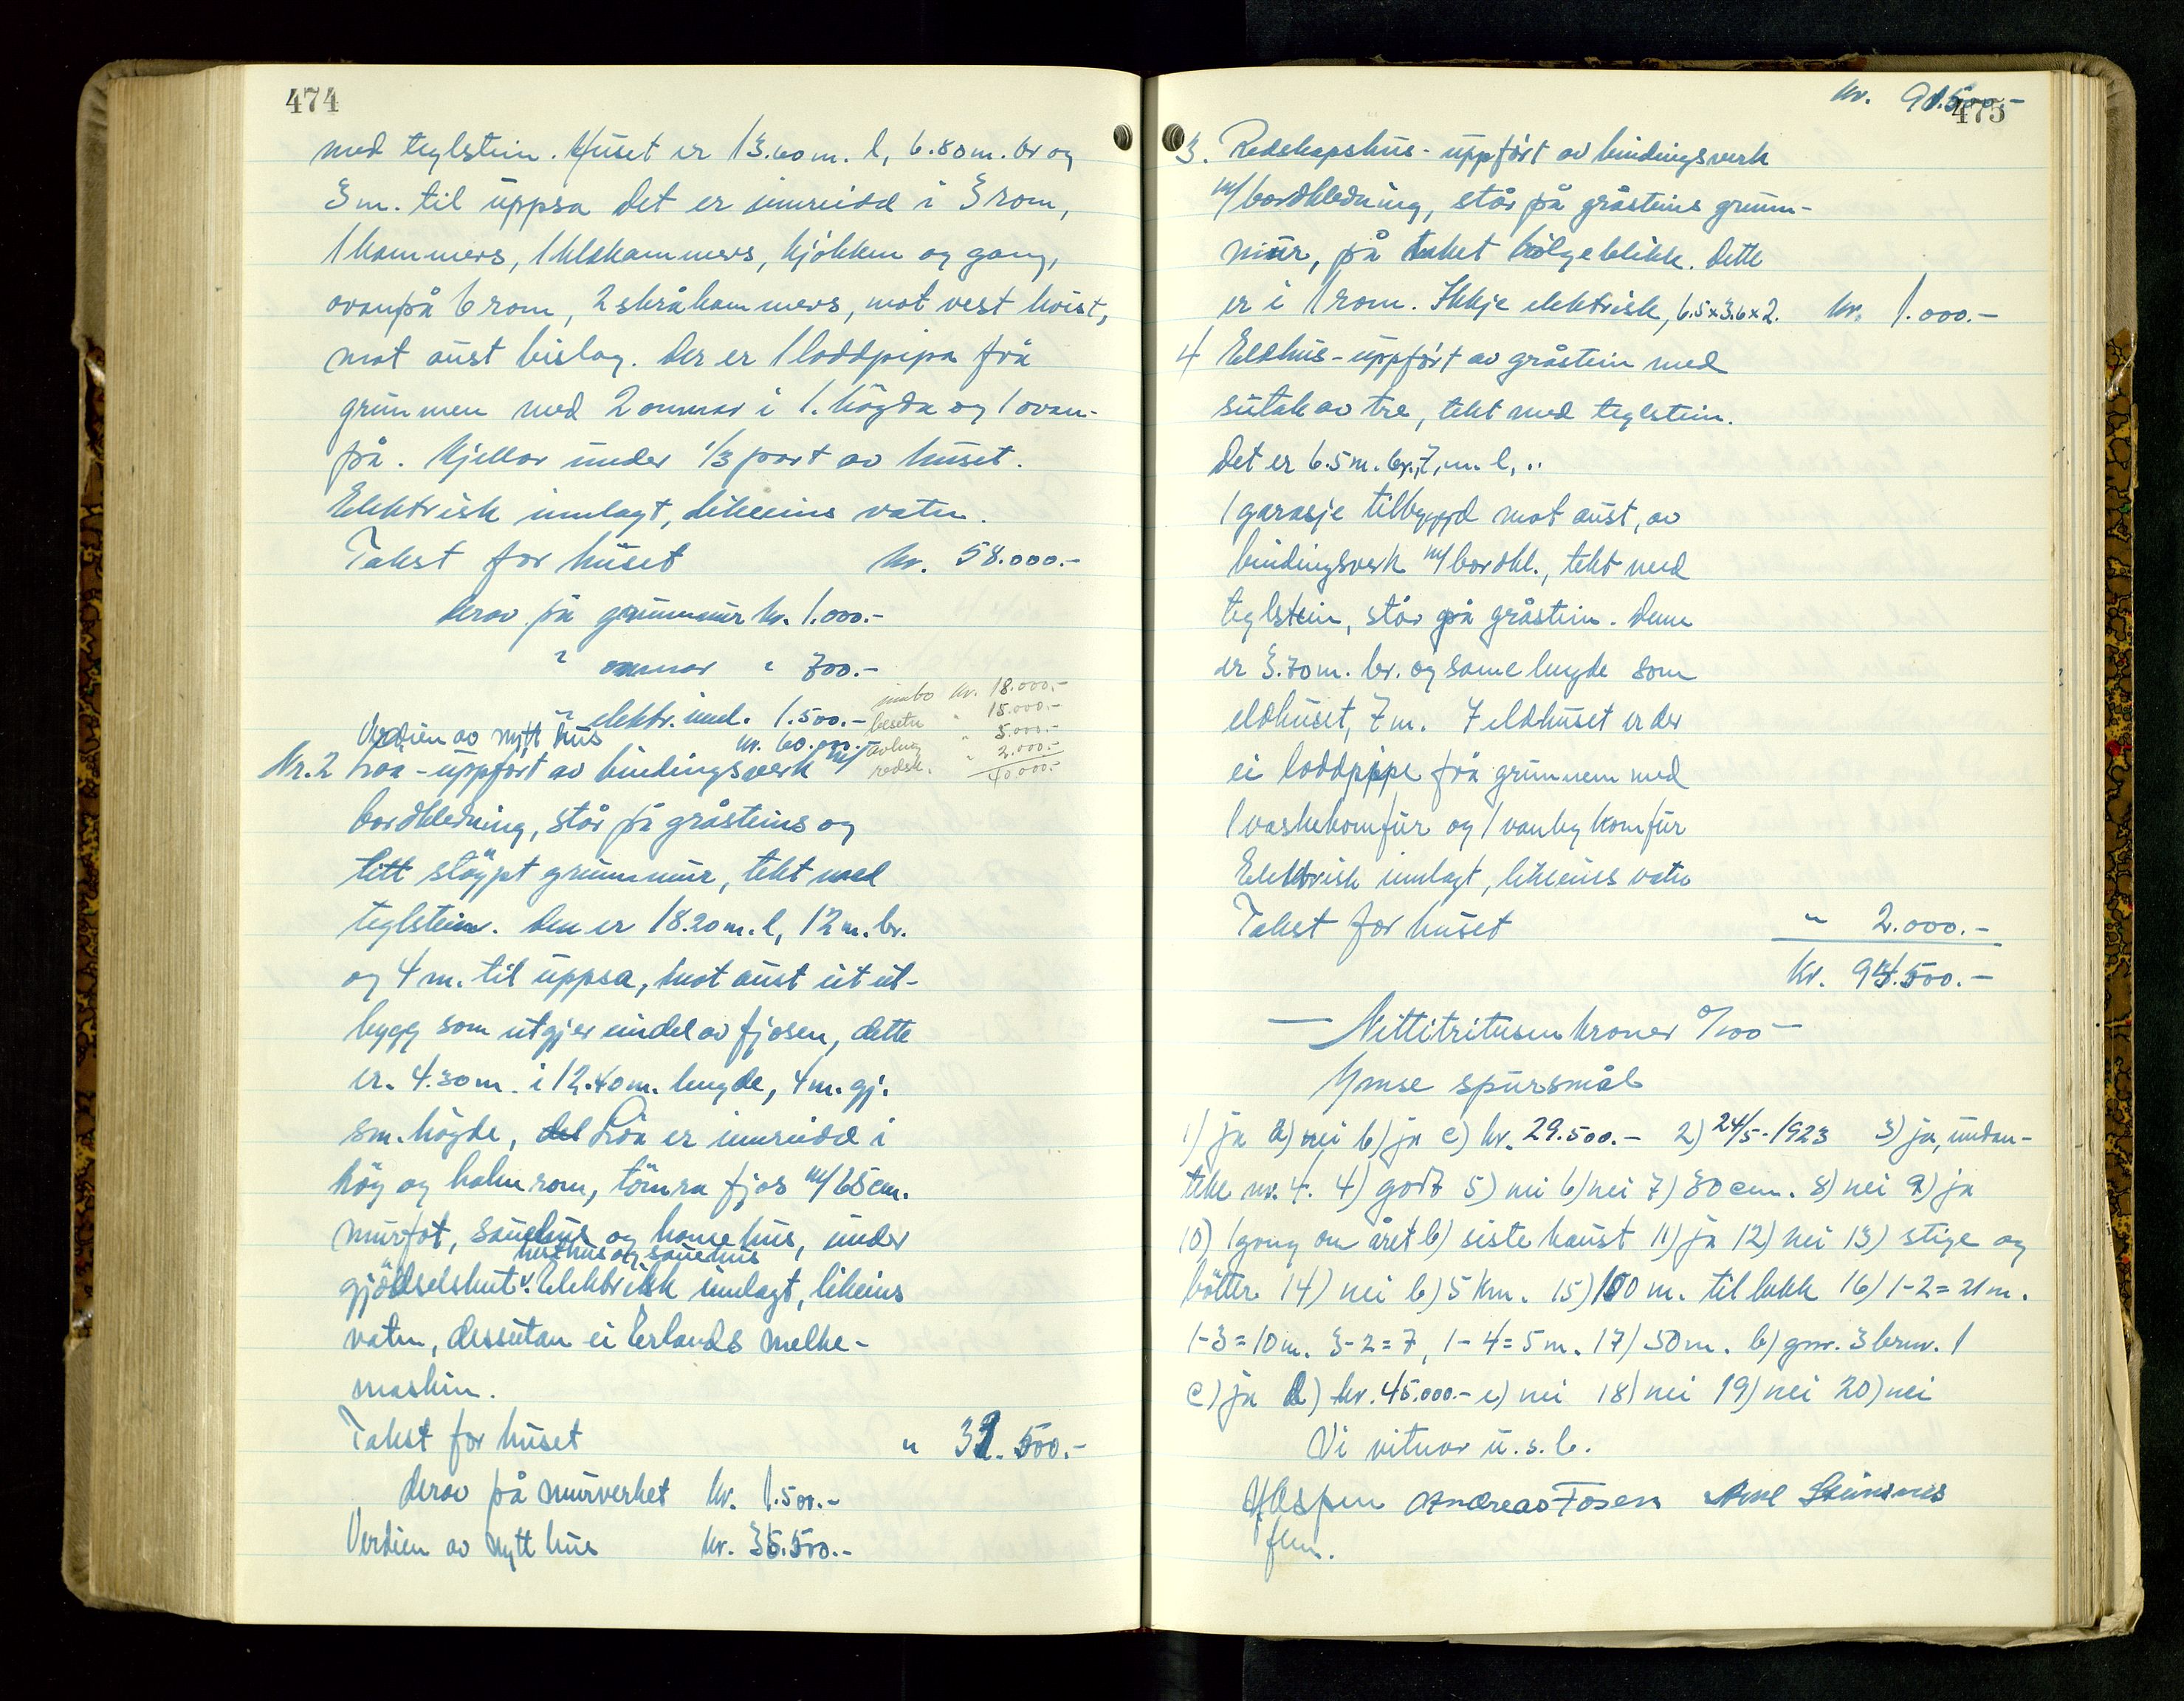 474
med teglstein. Huset er 13.60 m. l, 6.80 m. br og
3 m. til uppsa det er innreidd i 3 rom,
1 kammers, 1 klskammers, kjökken og gang,
ovanpå 6 rom, 2 skråkammers, mot vest kvist,
mot aust bislag. Der er 1 loddpipa frå
grunnen med 2 omnar i 1. högda og 1 ovan-
på. Kjellar under 1/3 part av huset.
Elektrisk innlagt, likeeins vatn.
Takst for huset kr. 58.000.-
derav på grunnmur kr. 1.000.-
" omnar " 700.-
" elektr. innl. 1.500.-
innbo kr. 18.000.-
besetn " 15.000.-
avling " 5.000.-
redsk. " 2.000.-
40000.-
Verdien av nytt hus kr. 60.000.-
Nr. 2 Löa - uppfört av bindingsverk m/
bordkledning, står på gråsteins og
litt stöypt grunnmur, tekt med
teglstein. Den er 18.20 m. l, 12 m. br.
og 4 m. til uppsa, mot aust eit ut-
bygg som utgjer eindel av fjosen, dette
er. 4.30 m. i 12.40 m. lengde, 4 m. gj.
sm. högde, det Löa er innreidd i
höy og halm rom, tömra fjos m/ 65 cm.
murfot, sauehus og hönsehus, under
hesthus og sauehus
gjödselskut v. Elektrisk innlagt, likeins
vatn, dessutan ei Erlands melke-
maskin.
Takst for huset " 32.500.-
derav på murverket kr. 1.500.-
Verdien av nytt hus kr. 35.500.-
475
kr. 90.500.-
3. Redskapshus - uppfört av bindingsverk
m/bordkledning, står på gråsteins grunn-
mur, på taket bölgeblikk. Dette
er i 1 rom. Ikkje elektrisk, 6.5x3.6x2. kr. 1.000.-
4 Eldhus - uppfört av gråstein med
sutak av tre, tekt med teglstein.
Det er 6.5 m. br., 7, m. l, ..
1 garasje tilbyggd mot aust, av
bindingsverk m/bordkl., tekt med
teglstein, står på gråstein. Denne
er 3.70 m. br. og same lengde som
eldhuset, 7 m. I eldhuset er der
ei loddpipe frå grunnen med
1 vaskekomfur og 1 vanleg komfur
Elektrisk innlagt, likeeins vatn
Takst for huset " 2.000.-
Kr. 93.500.-
— Nittitritusen kroner 0/100 —
Ymse spursmål
1) ja a) nei b) ja c) kr. 29.500.- 2) 24/5-1923 3) ja, undan-
teke nr. 4. 4) godt 5) nei 6) nei 7) 30 cm. 8) nei 9) ja
10) 1 gong om året b) siste haust 11) ja 12) nei 13) stige og
bötter 14) nei b) 5 km. 15) 100 m. til bekk 16) 1-2 = 21 m.
1-3 = 10 m. 3-2 = 7, 1-4 = 5 m. 17) 50 m. b) gnr. 3 brnr. 1
c) ja d) kr. 45.000.- e) nei 18) nei 19) nei 20) nei
Vi vitnar u.s.b.
H Aspen Andreas Fosen Arne Steinsnes
fm.